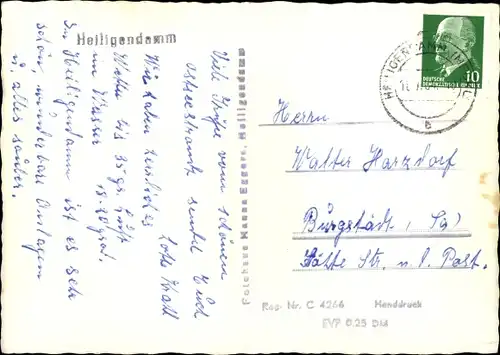 Heiligendamm
Viele Grüße vom schönen
Ostseestrand sendet Euch
Lotte
Wir haben herrliches
Wetter bis 35 gr. Luft
im Wasser 18-20 grad!
In Heiligendamm ist es sehr
schön, wunderbare Anlagen
u. alles sauber.
DEUTSCHE
DEMOKRATISCHE REPUBLIK
10
b
Herrn
Walter Harzdorf
Burgstädt, Sa
Str. n. d. Post.
Reg. Nr. C 4266 Handdruck
EVP 0.25 DM